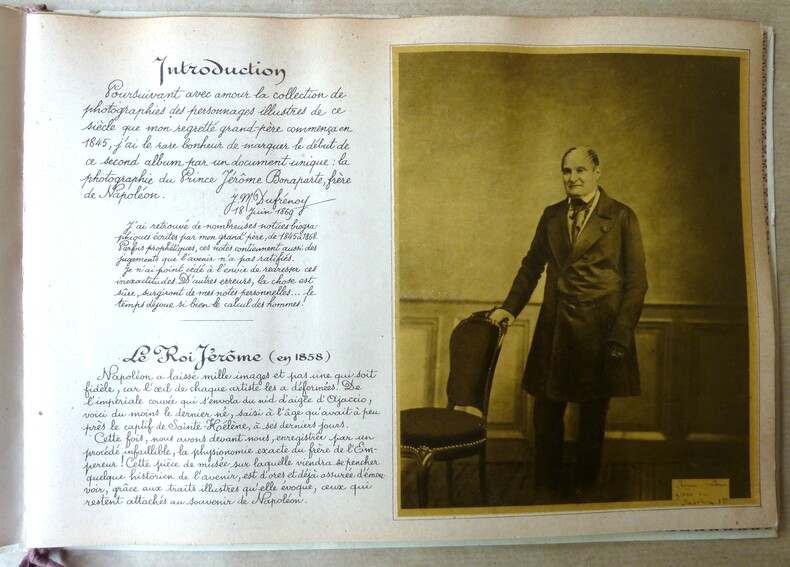 Introduction
Poursuivant avec amour la collection de
photographies des personnages illustres de ce
siècle que mon regretté grand-père commença en
1845, j'ai le rare bonheur de marquer le début de
ce second album par un document unique : la
photographie du Prince Jérôme Bonaparte, frère
de Napoléon.
J.M. Dufrénoy
18 Juin 1869
J'ai retrouvé de nombreuses notices biogra-
phiques écrites par mon grand-père, de 1845 à 1868.
Parfois prophétiques, ces notes contiennent aussi des
jugements que l'avenir n'a pas ratifiés.
Je n'ai point cédé à l'envie de redresser ces
inexactitudes. D'autres erreurs, la chose est
sûre, surgiront de mes notes personnelles... le
temps déjoue si bien le calcul des hommes !
Le Roi Jérôme (en 1858)
Napoléon a laissé mille images et pas une qui soit
fidèle, car l'œil de chaque artiste les a déformées. De
l'impériale couvée qui s'envola du nid d'aigle d'Ajaccio,
voici du moins le dernier né, saisi à l'âge qu'avait à peu
près le captif de Sainte-Hélène, à ses derniers jours.
Cette fois, nous avons devant nous, enregistrée par un
procédé infaillible, la physionomie exacte du frère de l'Em-
pereur ! Cette pièce de musée sur laquelle viendra se pencher
quelque historien de l'avenir, est d'ores et déjà assurée d'émou-
voir, grâce aux traits illustres qu'elle évoque, ceux qui
restent attachés au souvenir de Napoléon.